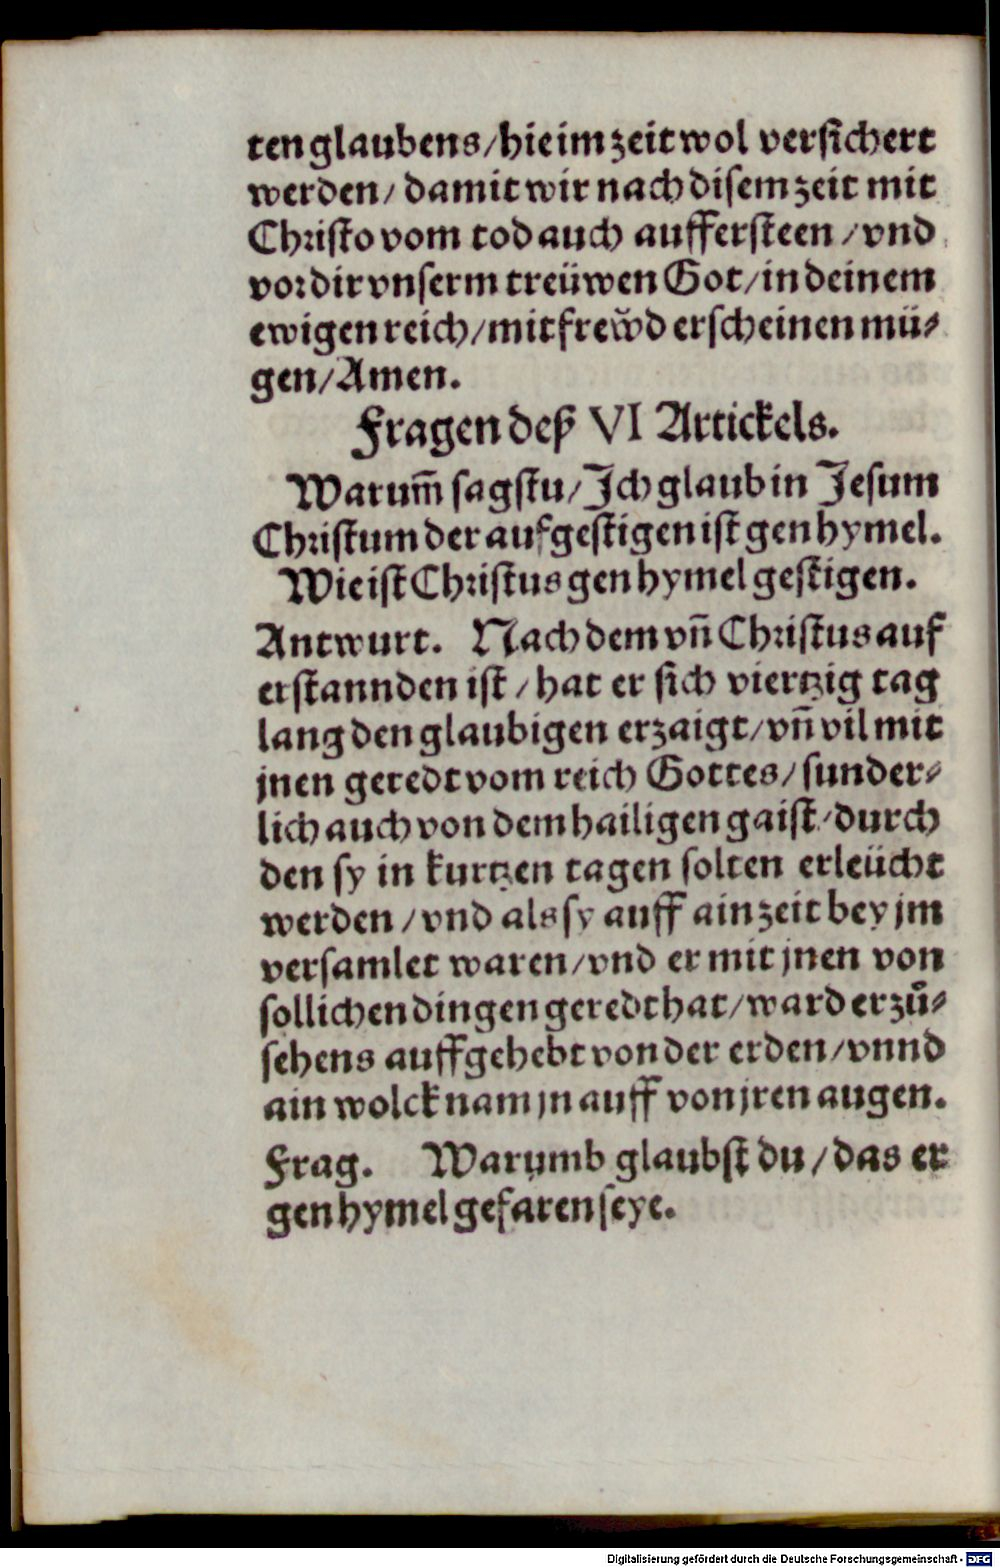 ten glaubens/hie im zeit wol versichert
werden/ damit wir nach disem zeit mit
Christo vom tod auch aufferſteen/vnd
vor dir vnserm treüwen Got/in deinem
ewigen reich/mit frewͦd erscheinen mü⸗
gen/Amen.
Fragen deß VI Artickels.
Warum̄ sagstu/Ich glaub in Jesum
Christum der aufgestigen ist gen hymel.
Wie ist Christus gen hymel gestigen.
Antwurt. Nach dem vn̄ Christus auf
erstannden ist/hat er sich viertzig tag
lang den glaubigen erzaigt/vn̄ vil mit
jnen geredt vom reich Gottes/sunder⸗
lich auch von dem hailigen gaist/durch
den sy in kurtzen tagen solten erleücht
werden/vnd als sy auff ain zeit bey jm
versamlet waren/vnd er mit jnen von
sollichen dingen geredt hat/ward er zuͦ⸗
sehens auffgehebt von der erden/vnnd
ain wolck nam jn auff von jren augen.
Frag. Warumb glaubst du/das er
gen hymel gefaren seye.
Digitalisierung gefördert durch die Deutsche Forschungsgemeinschaft - DFG